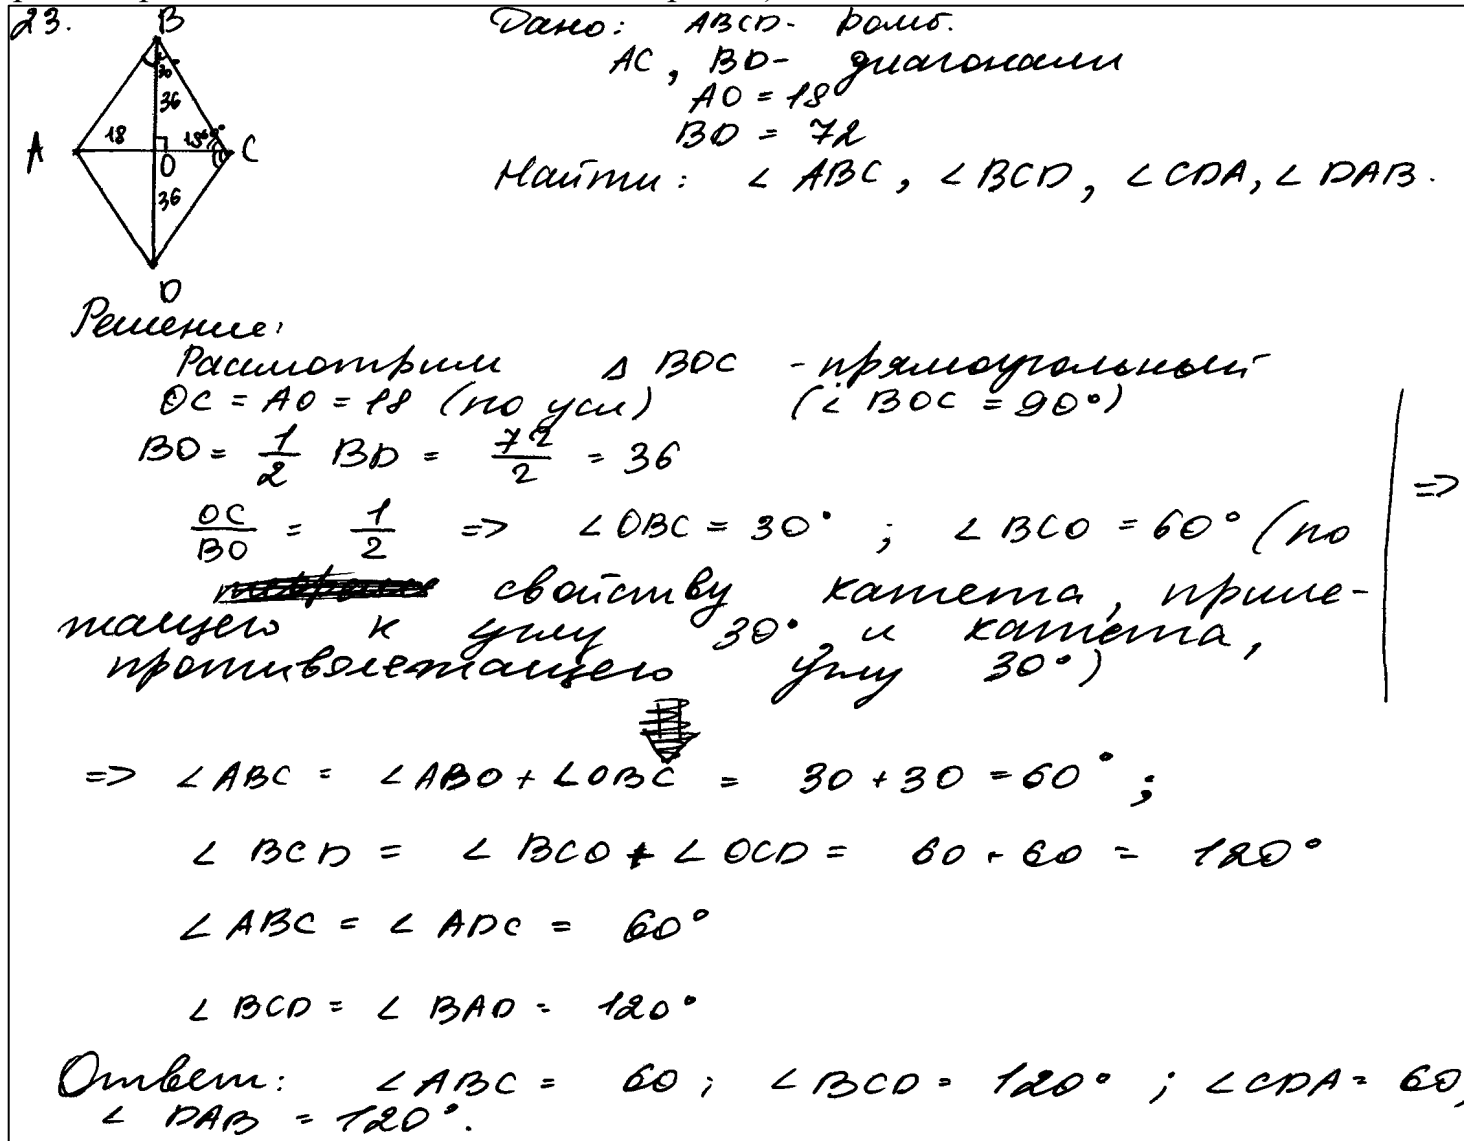 23.
B
30°
36
A 18 18 60° C
O
36
D
Дано: ABCD- ромб.
AC, BD- диагонали
AO = 18
BD = 72
Найти: ∠ ABC, ∠ BCD, ∠ CDA, ∠ DAB.
Решение:
Рассмотрим Δ BOC - прямоугольный
OC = AO = 18 (по усл) (∠ BOC = 90°)
BO = 1/2 BD = 72/2 = 36
OC/BO = 1/2 => ∠OBC = 30° ; ∠ BCO = 60° (по =>
свойству катета, приле-
жащего к углу 30° и катета,
противолежащего углу 30°)
=> ∠ABC = ∠ABO + ∠OBC = 30 + 30 = 60° ;
∠ BCD = ∠ BCO + ∠ OCD = 60 + 60 = 120°
∠ ABC = ∠ ADC = 60°
∠ BCD = ∠ BAD = 120°
Ответ: ∠ABC = 60 ; ∠BCD = 120° ; ∠CDA = 60,
∠ DAB = 120°.